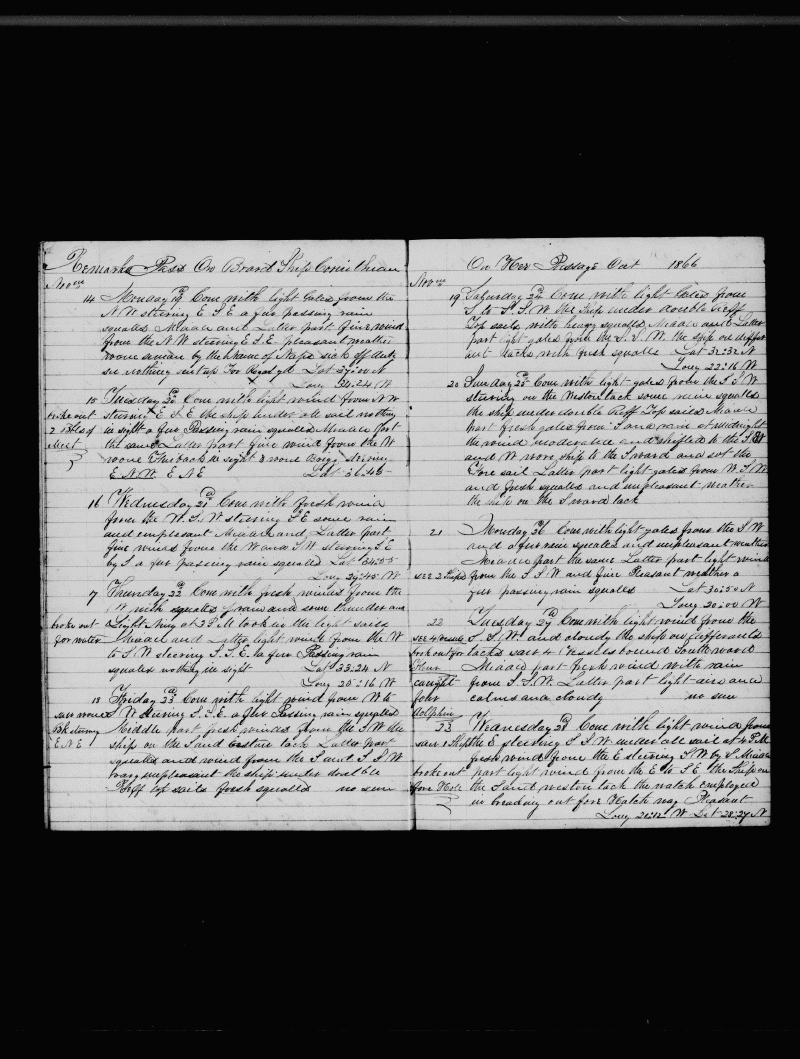 Remarks Pass On Board Ship Corinthian
Nov
14 Monday 19 Com with light Gales from the
N W steering E S E a few passing rain
squalls Middle and Latter part fine wind
from the N W steering E S E pleasant weather
sick off duty
nothing Lat 37:00 N
Long 34:24 W
15 Tuesday 20 Com with light wind from N W
broke out steering E S E the ship under all sail nothing
2 Bbls of in sight a few Passing rain squalls Middle Part
Meet the same Latter part fine wind from the W
in sight steering
E N W E N E Lat 36:45
16 Wednesday 21 Com with fresh wind
from the W S W steering S E some rain
and unpleasant Middle and Latter part
fine winds from the W and S W steering S E
by S a few passing rain squalls Lat 34:55
Long 29:45 W
17 Thursday 22 Com with fresh winds from the
W with squalls of rain and some thunder and
broke out Lightning at 2 P M took in the light sails
for water Middle and Latter light wind from the W
to S W steering S S E a few Passing rain
squalls nothing in sight Lat 33:24 N
Long 25:16 W
18 Friday 23 Com with light wind from W to
saw S W steering S S E a few Passing rain squalls
Bk steering Middle part fresh winds from the S W the
E N E ship on the S and Eastern tack Latter part
squalls and wind from the S and S S W
very unpleasant the ship under double
Reff top sails fresh squalls no sun
On Her Passage Out 1866
Nov
19 Saturday 24 Com with light Gales from
S to S S W the Ship under double Reff
Top sails with heavy squalls Middle and Latter
part light gales from the S S W the ship on differ
ent tacks with fresh squalls Lat 32:32 N
Long 22:16 W
20 Sunday 25 Com with light gales from the S S W
steering on the Western tack some rain squalls
the ship under double Reff Top sails Middle
part fresh gales from S and rain at midnight
the wind moderate and shifted to the S W
and W wore ship to the S ward and set the
Fore sail Latter part light gales from W S W
and fresh squalls and unpleasant weather
the ship on the S ward tack
21 Monday 26 Com with light gales from the S W
and a few rain squalls and unpleasant weather
Middle part the same Latter part light wind
see 2 Ships from the S S W and fine Pleasant weather a
few passing rain squalls Lat 30:50 N
Long 20:00 W
22 Tuesday 27 Com with light wind from the
see 4 Vessels S S W and cloudy the ship on different
broke out for tacks saw 4 Vessels bound Southward
Flour Middle part fresh wind with rain
caught from S S W Latter part light airs and
four calms and cloudy no sun
dolphin
23 Wednesday 28 Com with light wind from
saw 1 Ship the E steering S S W under all sail at 4 P M
fresh wind from the E steering S W by S Middle
broke out part light wind from the E to S E the Ship on
fore Hole the S and western tack the watch employed
in breaking out fore Hatch Pleasant
Long 20:12 W Lat 28:27 N